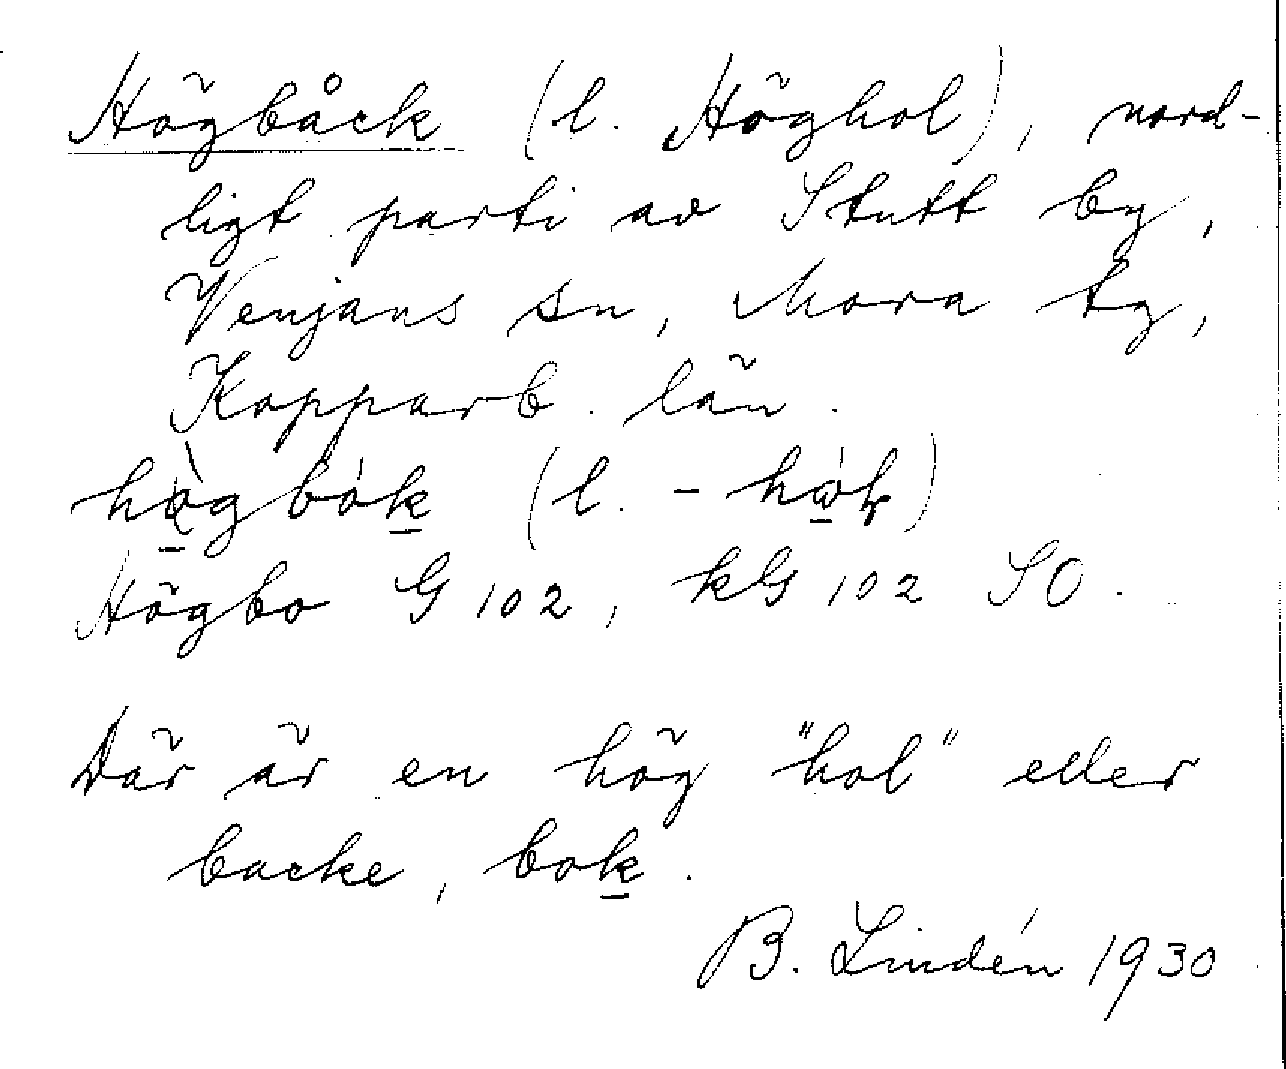 Högbåck (l. Höghol), nord-
ligt parti av Stutt by,
Venjans sn, Mora tg,
Kopparb. län.
högbók (l. - hól)
Högbo G 102, kG 102 SO.
Där är en hög "hol" eller
backe, bok.
B. Lindén 1930